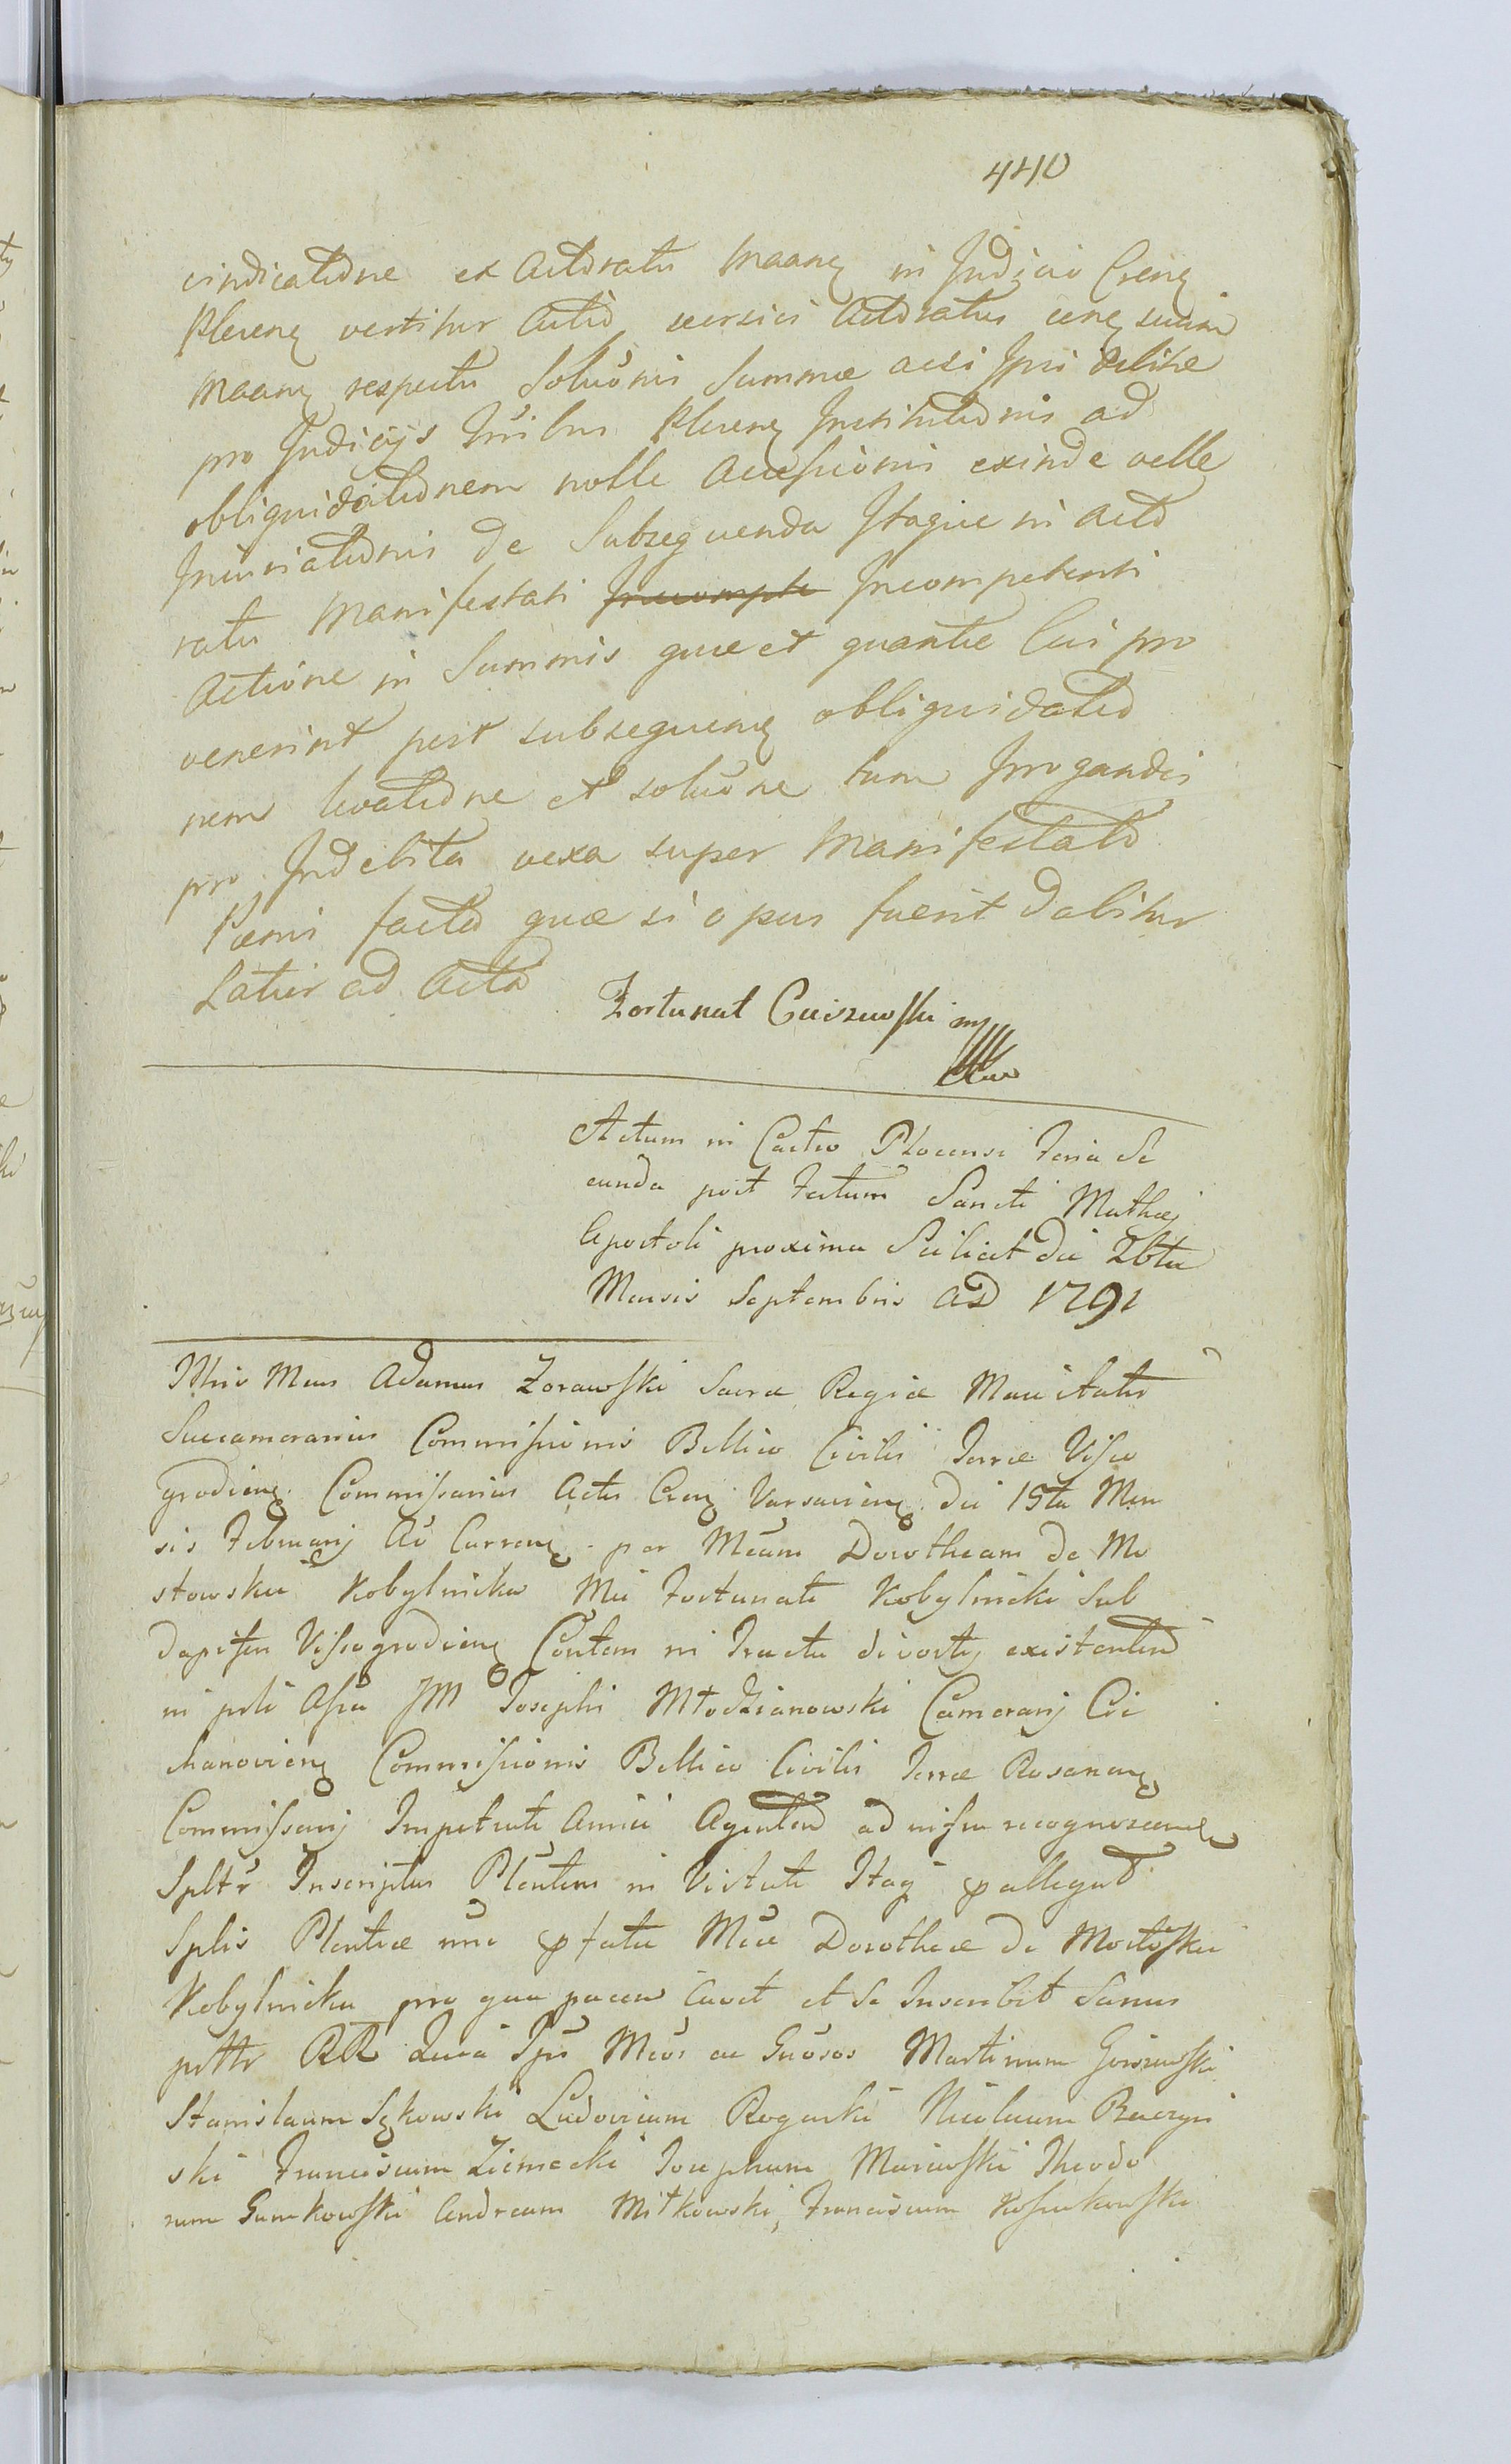 440
vindicatione ex Actoratu Maanę in Judicio Crenę
Plocenę vertitur Actio versus Actoratus cenę suum
Maanę respectu Soluōnis Summæ acsi Ipsi debitæ
pro Judicijs Trilus Plocenę Institutionis ad
obliquidationem nolle Accessionis exinde velle
Inuiationis de Subsequenda Itaque in Acto
ratu Manifestati Incompte Incompetenti
Actione in Summis quæ et quantæ Cui pro
venerint post subsequenę obliquidatio
nem levatione et soluōne tum Irrogandis
pro Indebita vexa super Manifestato
Pœnis facto quæ si opus fuerit dabitur
Latius ad Acta
Fortunat Cuiszewski mp
Actum in Castro Plocensi Feria Se
cunda post Festum Sancti Mathæj
Apostoli proxima Scilicet die 26ta
Mensis Septembris AD 1791
Adamus Zorawski Sacræ Regiæ Maiestatis
Succamerarius Commissionis Bellico Civilis Terræ Visso
grodienę Commissarius Actis Crenę Varsavienę die 15ta Men
sis Februarij Aō Currenę per Mcam Dorotheam de Mo
stowskie Kobylnicka Mci Fortunati Kobylnicki Sub
dapiferi Vissogrodienę Contem in Tractu divortij existentem
in pnti Assa JM Josephi Młodzianowski Camerarij Cie
chanovienę Commissionis Bellico Civilis Terræ Rosanenę
Commissarij Impetrati Amici Agentem ad infra recognoscenda
Spltr Inscriptus Plentem in Virtute Itaq pallegat
Splis Plentiæ une pfatæ Mcæ Dorotheæ de Mostowskie
Kobylnicka pro qua pacem Cavet et se Inscribit Sanus
pttr RR Quia Ipse Mcos ac Gnosos Martinum Goiszewski
Stanislaum Sękowski Ludovicum Rogucki Nicolaum Raczyń
ski Franciscum Ziemecki Josephum Murawski Theodo
rum Gumkowski Andream Mitkowski, Franciscum Kossakowski